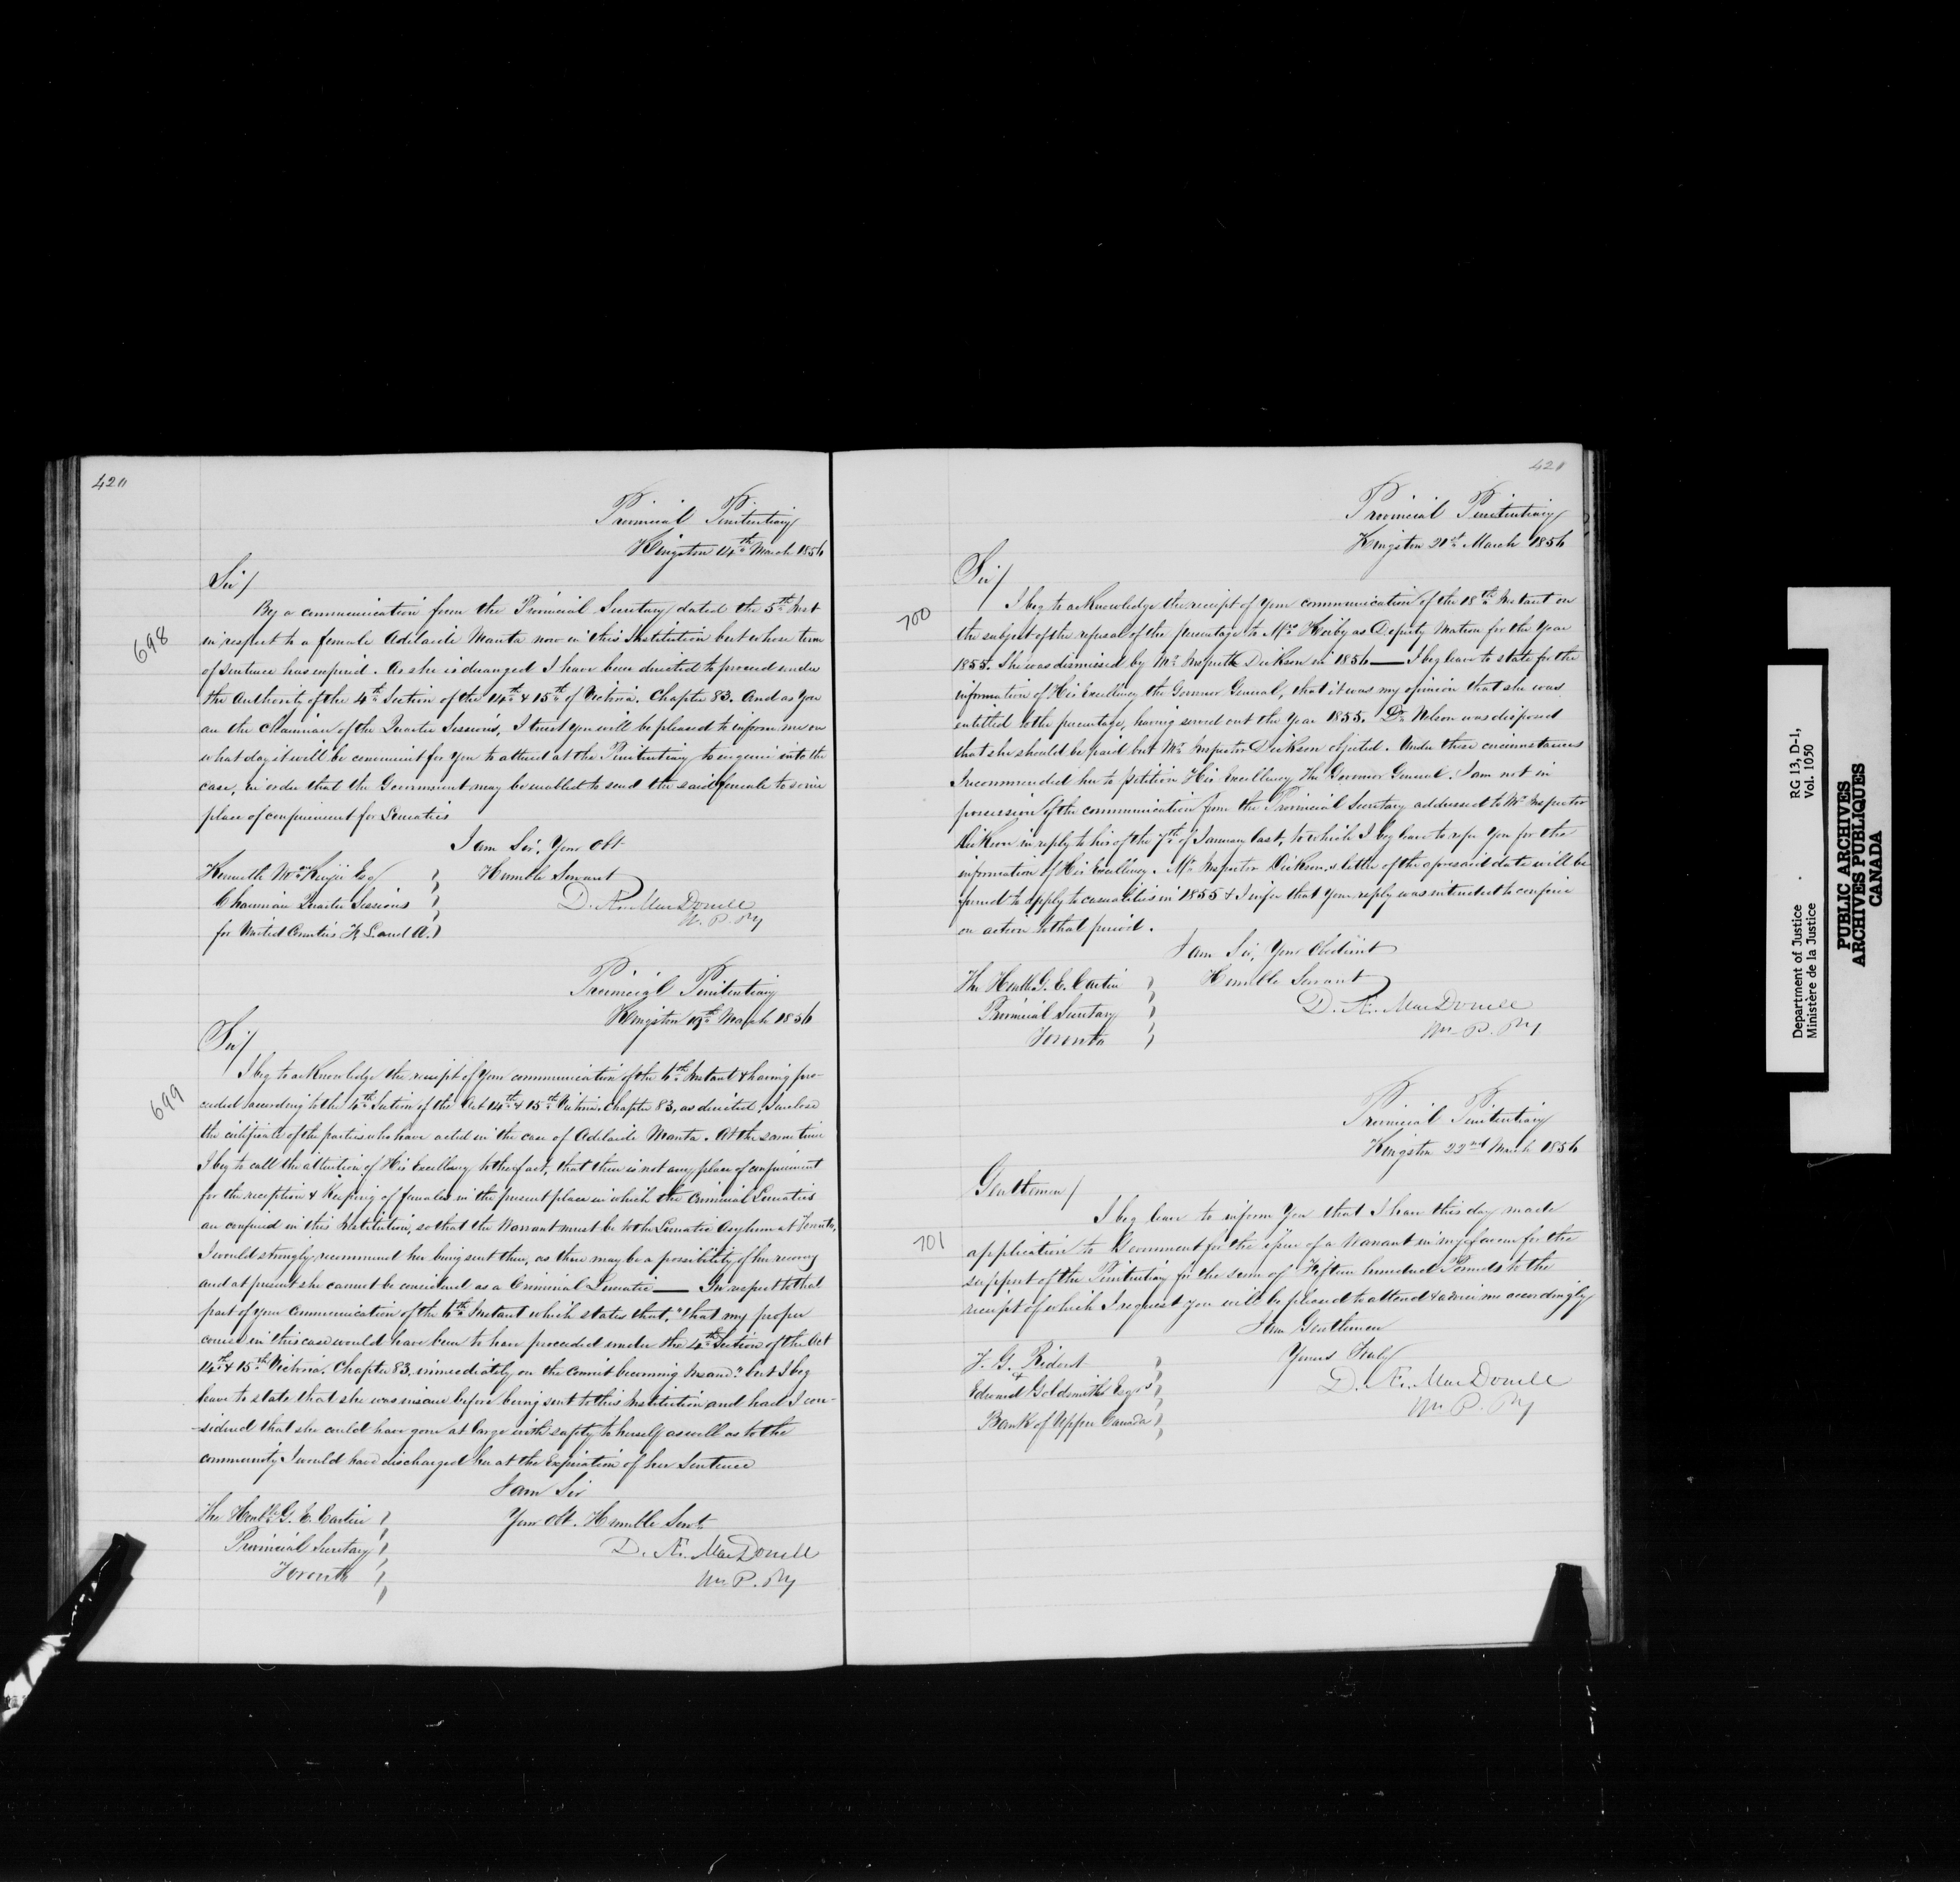 420
Provincial Penitentiary
Kingston 14th March 1856
Sir/
698
By a communication from the Provincial Secretary dated the 5th Inst
in respect to a female Adelaide Manta now in this Institution but whose term
of Sentence has expired. As she is deranged I have been directed to proceed under
the Authority of the 4th Section of the 14th & 15th of Victoria. Chapter 83. And as You
are the Chairman of the Quarter Sessions, I trust you will be pleased to inform me on
what day it will be convenient for You to attend at the Penitentiary to enquire into the
case, in order that the Government may be enabled to send the said female to some
place of confinement for Lunatics
I am Sir, Your Obt
Humble Servant
D. Æ. MacDonell
W. P. Py
Kenneth McKenzie Esq
Chairman Quarter Sessions
for United Counties F, L and A.
Provincial Penitentiary
Kingston 19th March 1856
Sir/
699
I beg to acKnowledge the receipt of Your communication of the 6th Instant & having pro-
ceeded according to the 4th Section of the Act 14th & 15th Victoria. Chapter 83, as directed, I enclose
the certificate of the parties who have acted in the case of Adelaide Manta. At the same time
I beg to call the attention of His Excellency to the fact, that there is not any place of confinement
for the reception & Keeping of females in the present place in which the Criminal Lunatics
are confined in this Institution, so that the Warrant must be to the Lunatic Asylum at Toronto,
I would strongly recommend her being sent there, as there may be a possibility of her recovery
and at present she cannot be considered as a Criminal Lunatic — In respect to that
part of your Communication of the 6th Instant which states that, "that my proper
course in this case would have been to have proceeded under the 4th Section of the Act
14th & 15th Victoria. Chapter 83. immediately on the Convict becoming Insane." but I beg
leave to state that she was insane before being sent to this Institution and had I con-
-sidered that she could have gone at large with safety to herself as well as to the
community I would have discharged her at the Expiration of her Sentence
I am Sir
Your Obt. Humble Servt
D. Æ. MacDonell
W. P. Py
The Honble G. E. Cartier
Provincial Secretary
Toronto
421
Provincial Penitentiary
Kingston 21st March 1856
Sir/
700
I beg to acKnowledge the receipt of Your communication of the 18th Instant on
the subject of the refusal of the percentage to Mrs as Deputy Matron for the Year
1855. She was dismissed by Mr Inspector Dickson in 1856 — I beg leave to state for the
information of His Excellency the Governor General, that it was my opinion that she was
entitled to the percentage, having served out the Year 1855. Dr Nelson was disposed
that she should be paid but Mr Inspector Dickson objected. Under these circumstances
I recommended her to petition His Excellency The Governor General. I am not in
possession of the communication from the Provincial Secretary addressed to Mr Inspector
DicKson in reply to his of the 7th of January last, to which I beg leave to refer You for the
information of His Excellency. Mr Inspector Dickson,s letter of the aforesaid date will be
found to apply to casualities in 1855 & I infer that Your reply was intended to confine
on action to that period.
I am Sir, Your Obedient
Humble Servant
D. Æ. MacDonell
W. P. Py
The Honble G. E. Cartier
Provincial Secretary
Toronto
Provincial Penitentiary
Kingston 22nd March 1856
Gentlemen/
701
I beg leave to inform You that I have this day made
application to Government for the issue of a Warrant in my favour for the
support of the Penitentiary for the sum of Fifteen hundred Pounds to the
receipt of which I request you will be pleased to attend & advise me accordingly
I am Gentlemen
Yours Truly
D. Æ. MacDonell
W. P. Py
T. G. Ridout
&
Edward Goldsmith Esqrs
Bank of Upper Canada
Department of Justice
Ministère de la Justice
RG 13, D-1,
Vol. 1050
PUBLIC ARCHIVES
ARCHIVES PUBLIQUES
CANADA